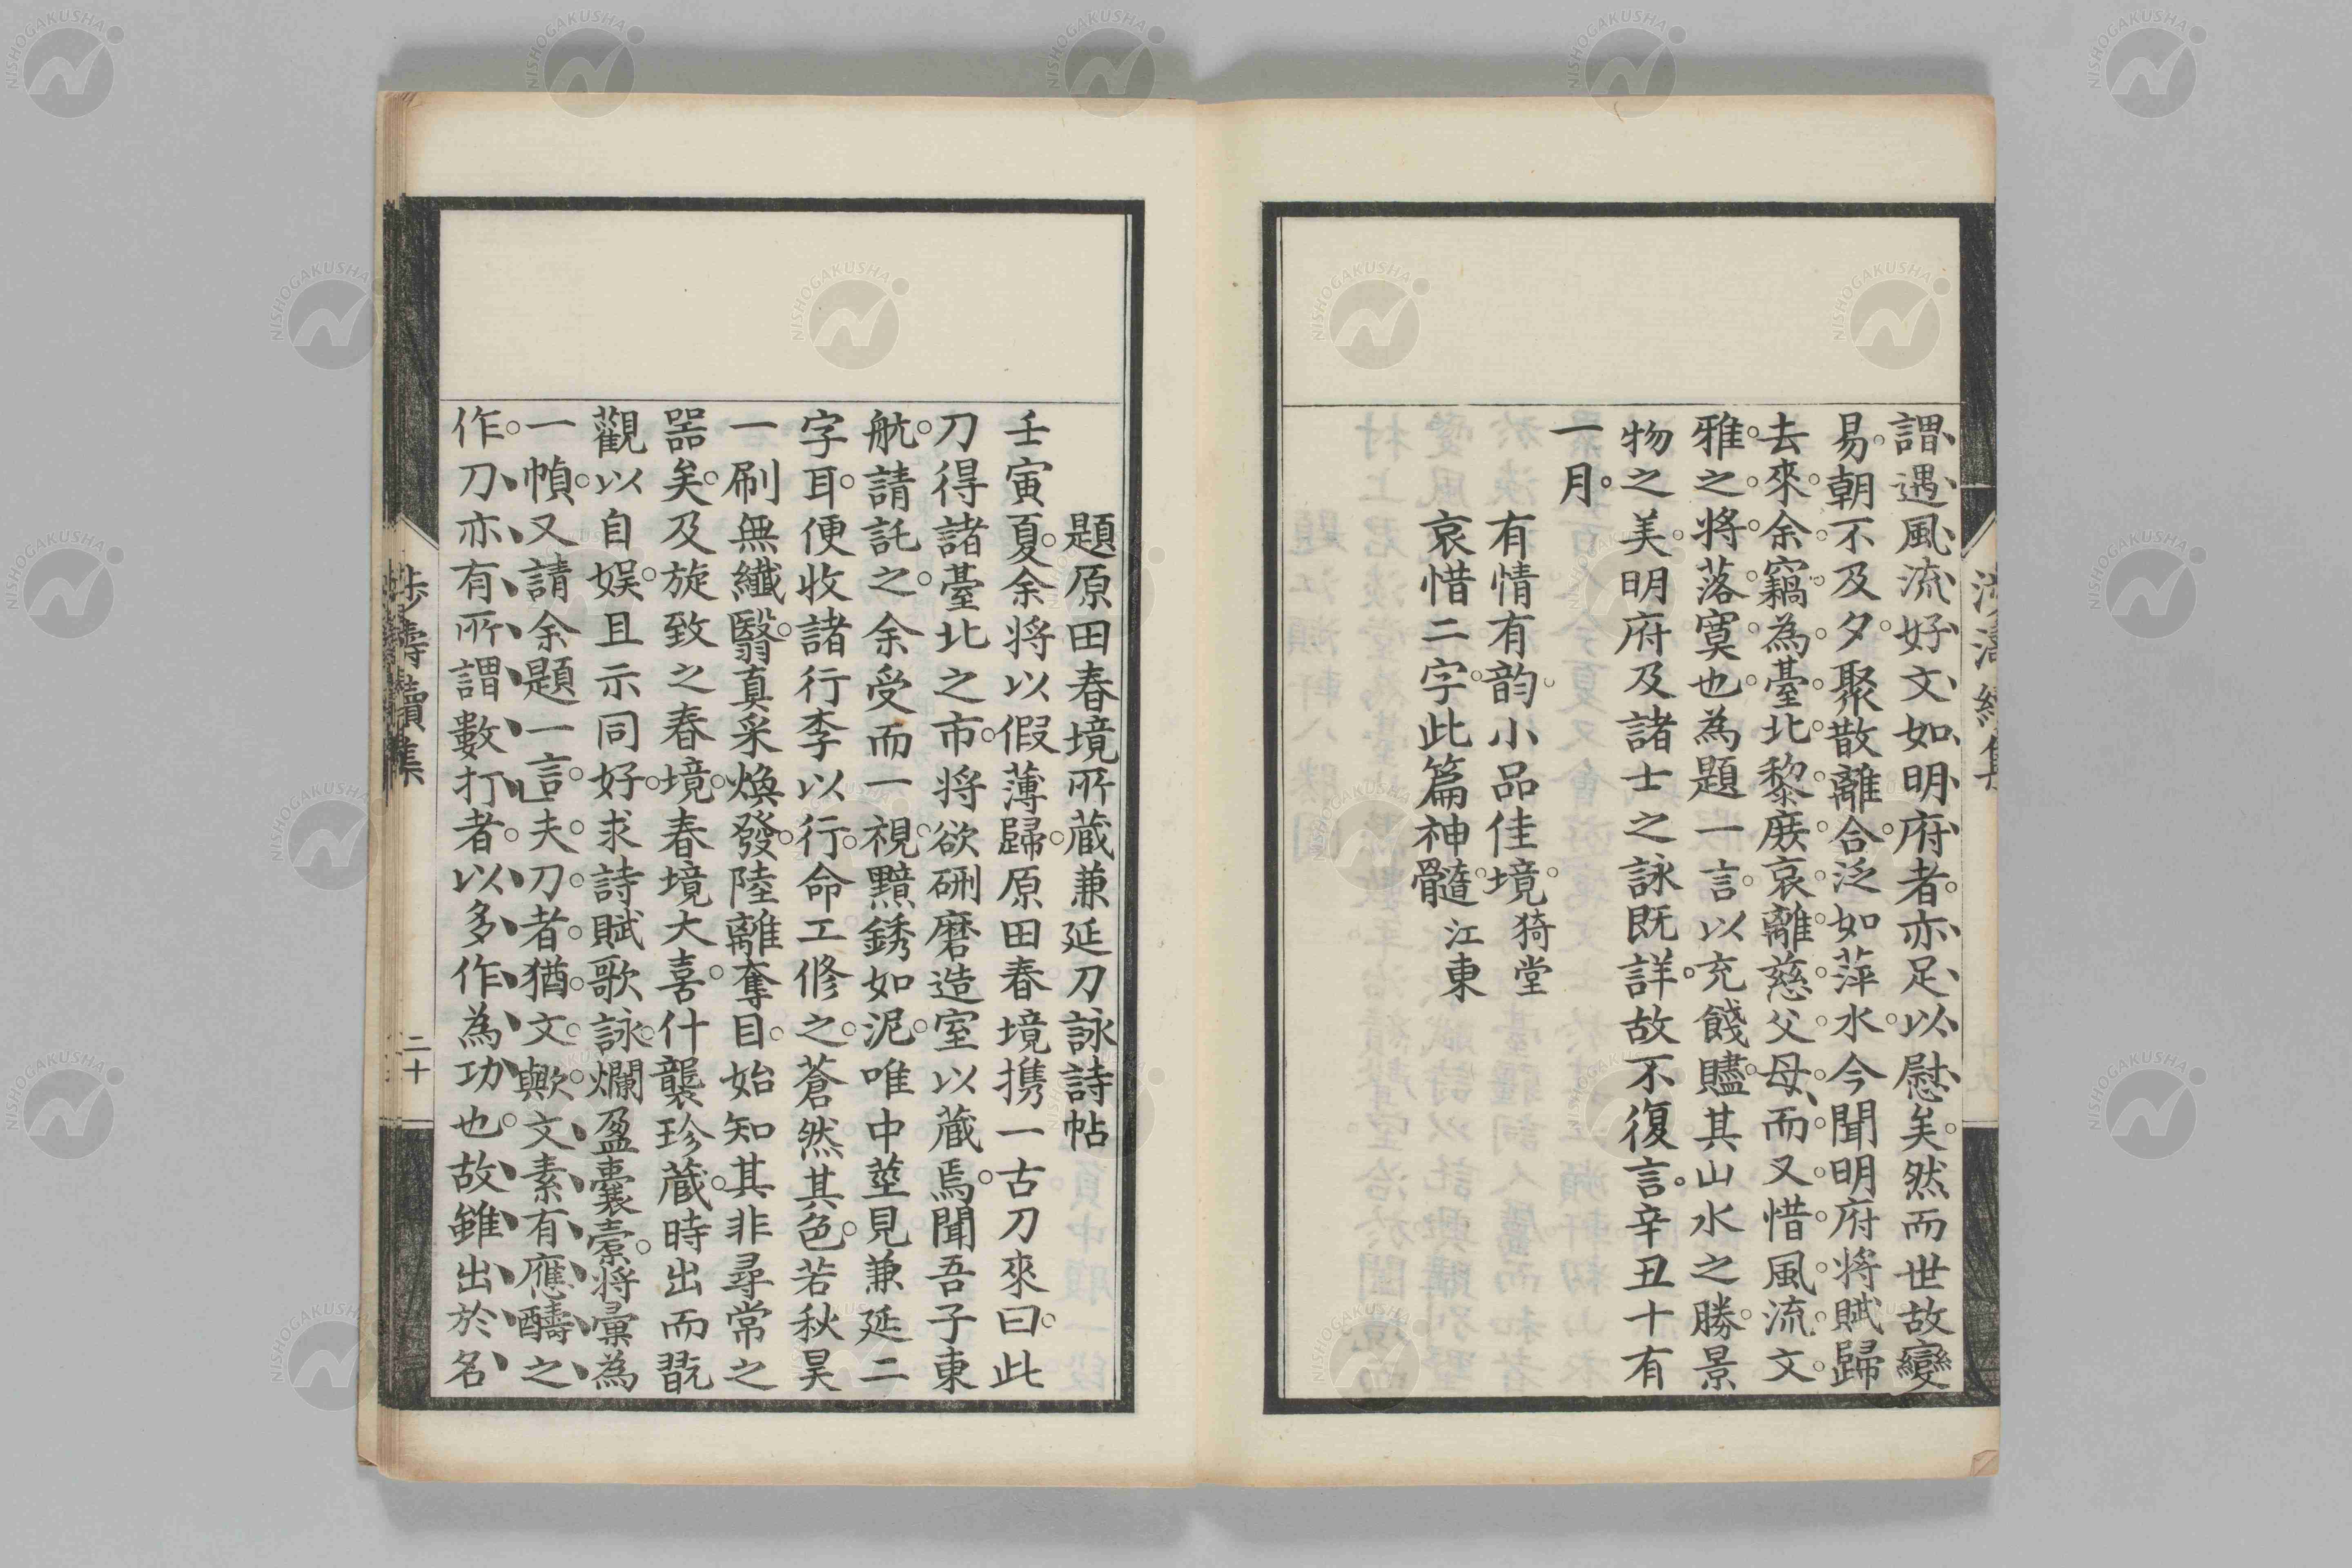 謂遇風流好文如明府者亦足以慰矣然而世故變
易朝不及夕聚散離合泛如萍水今聞明府將賦歸
去來余竊為臺北黎庶哀離慈父母而又惜風流文
雅之將落寞也為題一言以充餞贐其山水之勝景
物之美明府及諸士之詠既詳故不復言辛丑十有
一月
有情有韵小品佳境 猗堂
哀惜二字此篇神髓 江東
題原田春境所蔵兼延刀詠詩帖
壬寅夏余將以假薄歸原田春境携一古刀來曰此
刀得諸臺北之市將欲硎磨造室以蔵焉聞吾子東
航請託之余受而一視黯銹如泥唯中莖見兼延二
字耳便收諸行李以行命工修之蒼然其色若秋昊
一刷無纖翳真采煥發陸離奪目始知其非尋常之
器矣及旋致之春境春境大喜什襲珍蔵時出而翫
觀以自娯且示同好求詩賦歌詠爛盈囊橐將彙為
一幀又請余題一言夫刀者猶文歟文素有應醻之
作刀亦有所謂數打者以多作為功也故雖出於名
濤續集
二十
NISHOGAKUSHA